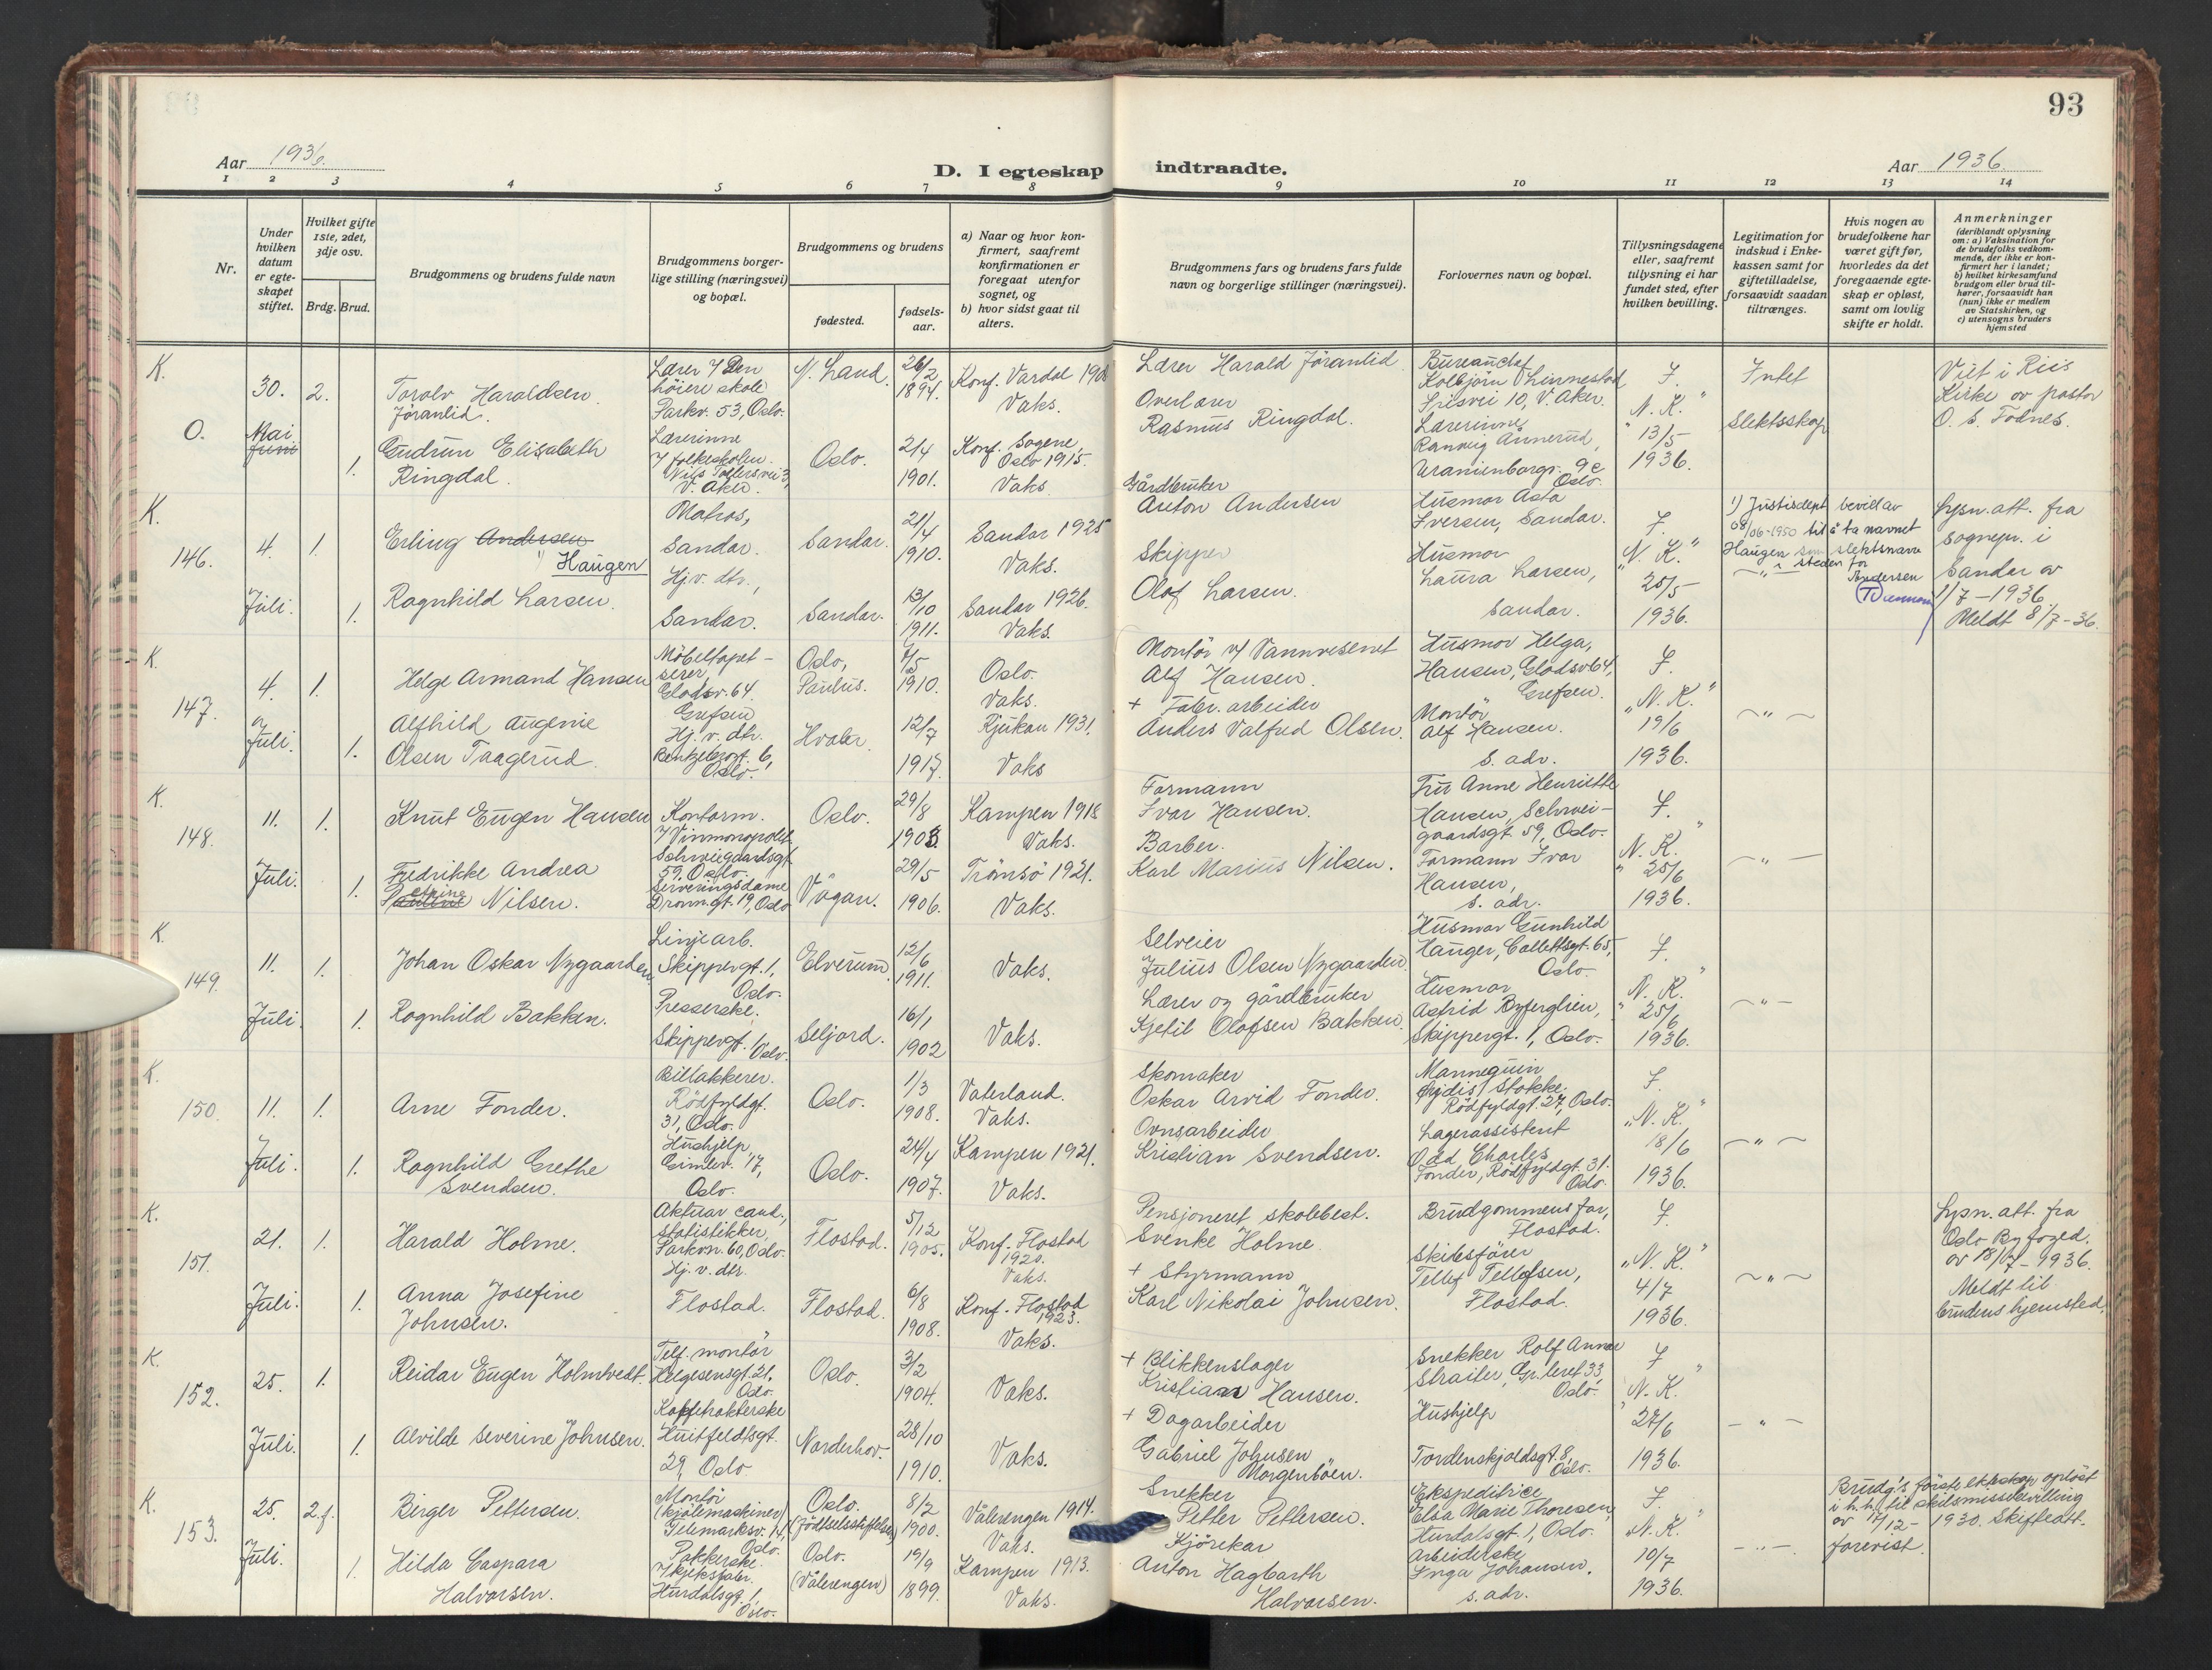 93
Aar 1936.
D. I egteskap indtraadte.
Aar 1936
1 2 3 4 5 6 7 8 9 10 11 12 13 14
Nr.
Under hvilken datum er egteskapet stiftet.
Hvilket gifte 1ste, 2det, 3dje osv.
Brdg. Brud.
Brudgommens og brudens fulde navn
Brudgommens borgerlige stilling (næringsvei) og bopæl.
Brudgommens og brudens
fødested.
fødselsaar.
a) Naar og hvor konfirmert, saafremt konfirmationen er foregaat utenfor sognet, og
b) hvor sidst gaat til alters.
Brudgommens fars og brudens fars fulde navn og borgerlige stillinger (næringsvei).
Forlovernes navn og bopæl.
Tillysningsdagene eller, saafremt tillysning ei har fundet sted, efter hvilken bevilling.
Legitimation for indskud i Enkekassen samt for giftetilladelse, forsaavidt saadan tiltrænges.
Hvis nogen av brudefolkene har været gift før, hvorledes da det foregaaende egteskap er opløst, samt om lovlig skifte er holdt.
Anmerkninger
(deriblandt oplysning om: a) Vaksination for de brudefolks vedkommende, der ikke er konfirmert her i landet;
b) hvilket kirkesamfund brudgom eller brud tilhører, forsaavidt han (hun) ikke er medlem av Statskirken, og
c) utensogns bruders hjemsted
K.
O.
30. Mai Juni
2.
Torolv Haraldsen Jöranlid.
Lærer / Den höiere skole Parkv. 53, Oslo.
N. Land.
26/2 1894.
Konf. Vardal 1908
Vaks.
Lærer Harald Jöranlid
Bureauchef Kolbjörn Linnestad, Irisvei 10, V. Aker.
F.
"N. K."
13/5 1936.
Intet Slektsskap
Viet i Riis Kirke av pastor O. S. Fodnes.
1.
Gudrun Elisabeth Ringdal.
Lærerinne / folkeskolen. Nils Tollersvei 3, V. Aker.
Oslo.
21/4 1901.
Konf. Sagene, Oslo 1915.
Vaks.
Overlærer Rasmus Ringdal.
Lærerinne Rannvig Annerud, Uranienborgv. 9c Oslo.
K.
146.
4. Juli.
1.
Erling Andersen
1) Haugen
Matros, Sandar.
Sandar.
21/4 1910.
Sandar 1925
Vaks.
Gårdbruker Anton Andersen
Husmor Asta Iversen, Sandar.
F.
"N. K."
25/5- 1936.
1) Justisdept bevill av 08/06-1950 til å ta navnet Haugen som slektsnavn i steden for Andersen
Lysn. att. fra sognepr. i Sandar av 1/7-1936
Meldt 8/7-36.
1.
Ragnhild Larsen.
Hj. v. dtr., Sandar.
Sandar.
13/10 1911.
Sandar 1926.
Vaks.
Skipper Olaf Larsen.
Husmor Laura Larsen, Sandar.
K.
147.
4. Juli.
1.
Helge Armand Hansen
Möbeltapetserer, Gladsv. 64. Grefsen
Oslo, Paulus.
7/5 1910.
Oslo.
Vaks.
Montör v/ Vannvesenet Alf Hansen.
Husmor Helga Hansen, Gladsv 64, Grefsen.
F.
"N. K."
19/6 1936.
- " -
1.
Alfhild Augenie Olsen Taagerud.
Hj. v. dtr. Bentzebrogt. 6, Oslo.
Hvaler.
12/7 1917.
Rjukan 1931.
Vaks
+ Fabr. arbeider Anders Valfred Olsen.
Montör Alf Hansen. s. adr.
K.
148.
11. Juli.
1.
Knut Eugen Hansen
Kontorm. / Vinmonopolet Schweigaardsgt. 59. Oslo.
Oslo.
29/8 1903.
Kampen 1918
Vaks.
Formann Ivar Hansen.
Fru Anne Henriette Hansen, Schweigaardsgt. 59, Oslo.
F.
"N. K."
25/6 1936.
- " -
1.
Fredrikke Andrea Petrine Nilsen.
Serveringsdame Dronn.gt. 19, Oslo
Vågan.
29/5 1906.
Tromsö 1921.
Vaks.
Barber. Karl Marius Nilsen.
Formann Ivar Hansen, s. adr.
K.
149.
11. Juli.
1.
Johan Oskar Nygaarden
Linjearb. Skippergt. 1, Oslo.
Elverum
12/6 1911.
Vaks.
Selveier Julius Olsen Nygaarden.
Husmor Gunhild Hauger, Collettsgt. 65, Oslo.
F.
"N. K."
25/6 1936.
- " -
1.
Ragnhild Bakken.
Presserske, Skippergt. 1 Oslo.
Seljord.
16/1 1902
Vaks.
Lærer og gårdbruker Kjetil Olafsen Bakken.
Husmor Astrid, Skippergt. 1, Oslo.
K.
150.
11. Juli.
1.
Arne Fonder.
Billakkerer. Rödfyldgt. 31, Oslo.
Oslo.
1/3 1908.
Vaterland.
Vaks.
Skomaker Oskar Arvid Fonder.
Mannequin Gydis Stokke. Rödfyldgt. 27, Oslo.
F.
"N. K."
18/6 1936.
- " -
1.
Ragnhild Grethe Svendsen.
Hushjelp, Gimlev. 17, Oslo.
Oslo.
24/4 1907.
Kampen 1921.
Vaks.
Ovnsarbeider Kristian Svendsen.
Lagerassistent Odd Charles Fonder, Rödfyldgt. 31. Oslo.
K.
151.
21. Juli.
1.
Harald Holme.
Aktuar cand., statistikker, Parkvn. 60, Oslo.
Flostad.
5/12 1905.
Konf. Flostad 1920.
Vaks.
Pensjoneret skolebest. Svenke Holme
Brudgommens far, Flostad.
F.
"N. K."
4/7 1936.
- " -
Lysn. att. fra Oslo Byfoged. av 18/7-1936.
Meldt til brudens hjemsted.
1.
Anna Josefine Johnsen.
Hj. v. dtr. Flostad.
Flostad.
6/8 1908.
Konf. Flostad 1923.
Vaks.
+ Styrmann Karl Nikolai Johnsen.
Skibsförer Tellef Tellefsen, Flostad.
K.
152.
25. Juli.
1.
Reidar Eugen Holmtvedt.
Telf. montör Helgesensgt. 21, Oslo.
Oslo.
3/2 1904.
Vaks.
+ Blikkenslager Kristian Hansen.
Snekker Rolf Annar Strailer, Gr.leret 33, Oslo.
F.
"N. K."
27/6 1936.
- " -
1.
Alvilde Severine Johnsen.
Kaffetrakterske Huitfeldtsgt. 29, Oslo
Norderhov.
28/10 1910.
Vaks.
+ Dagarbeider Gabriel Johnsen Morgenböen.
Hushjelp Tordenskjoldsgt. 8, Oslo.
K.
153.
25. Juli.
2. f.
Birger Pettersen.
Montör (kjölemaskiner) Telemarksv. 14, Oslo.
Oslo. (Födselsstiftelsen)
8/2 1900.
Vålerengen 1914.
Vaks.
Snekker Petter Pettersen.
Ekspeditrice Elsa Marie Thoresen, Hurdalsgt. 1, Oslo.
F.
"N. K."
10/7 1936.
- " -
Brudg's förste ekteskap oplöst i h. h. til skilsmissebevilling av 17/12-1930. Skifteatt. forevist.
1.
Hilda Caspara Halvorsen.
Pakkerske / kjeksfabr. Hurdalsgt. 1 Oslo.
Oslo. (Vålerengen)
19/9 1899.
Kampen 1913.
Vaks.
Kjörekar Anton Hagbarth Halvorsen.
Arbeiderske Inga Johansen. s. adr.